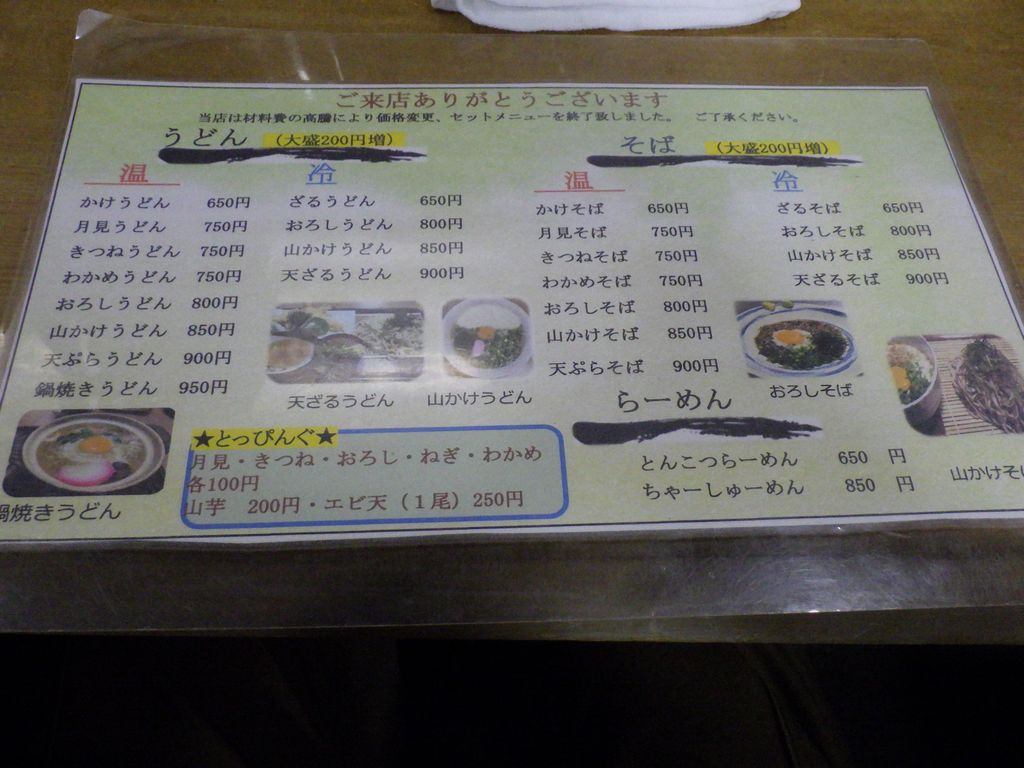 ご来店ありがとうございます
当店は材料費の高騰により価格変更、セットメニューを終了致しました。 ご了承ください。
うどん (大盛200円増)
温
かけうどん 650円
月見うどん 750円
きつねうどん 750円
わかめうどん 750円
おろしうどん 800円
山かけうどん 850円
天ぷらうどん 900円
鍋焼きうどん 950円
冷
ざるうどん 650円
おろしうどん 800円
山かけうどん 850円
天ざるうどん 900円
天ざるうどん 山かけうどん
鍋焼きうどん
★とっぴんぐ★
月見・きつね・おろし・ねぎ・わかめ
各100円
山芋 200円・エビ天(1尾)250円
そば (大盛200円増)
温
かけそば 650円
月見そば 750円
きつねそば 750円
わかめそば 750円
おろしそば 800円
山かけそば 850円
天ぷらそば 900円
冷
ざるそば 650円
おろしそば 800円
山かけそば 850円
天ざるそば 900円
おろしそば
山かけそ
らーめん
とんこつらーめん 650 円
ちゃーしゅーめん 850 円